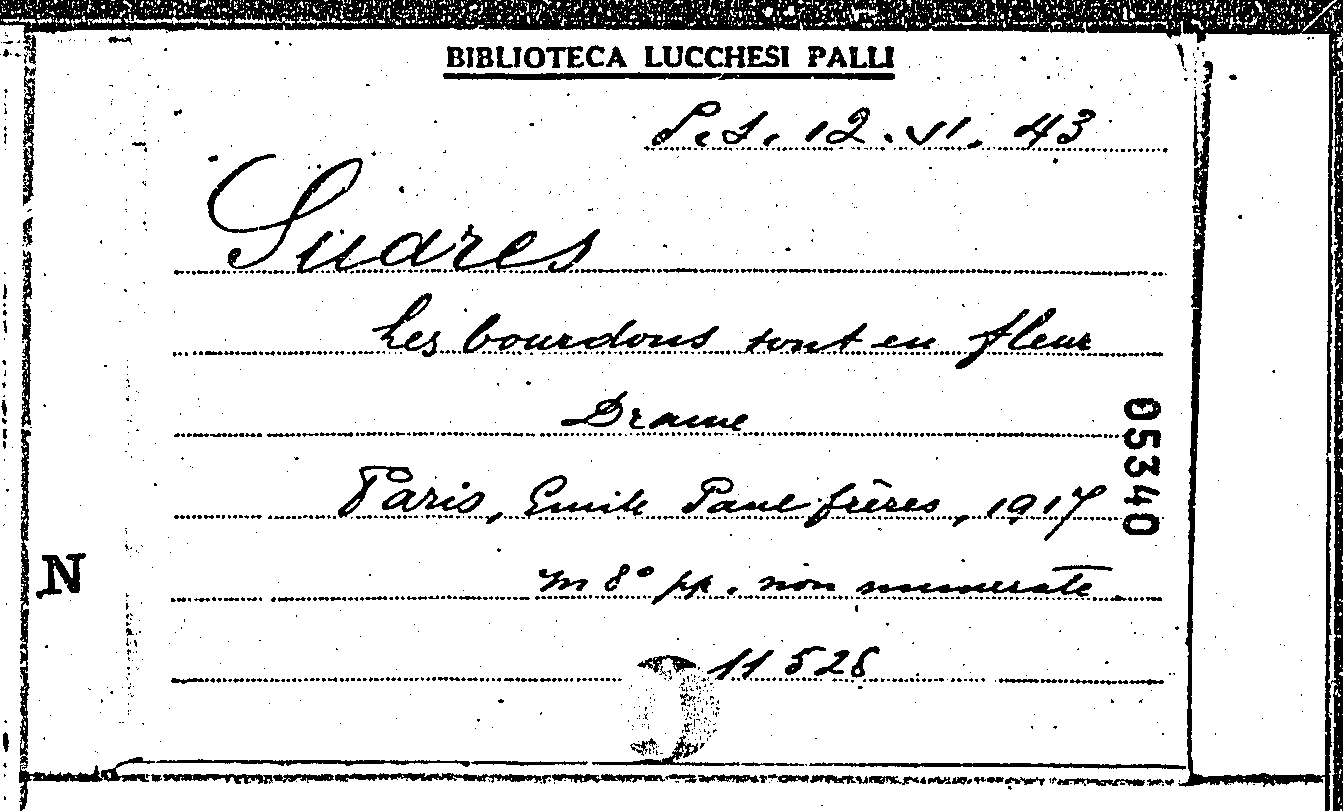 BIBLIOTECA LUCCHESI PALLI
P.S. 12. VI. 43
Suares
Les bourdons sont en fleur
Drame
Paris, Emile Paul frères, 1917
in 8° pp. non numerate
11528
05340
N